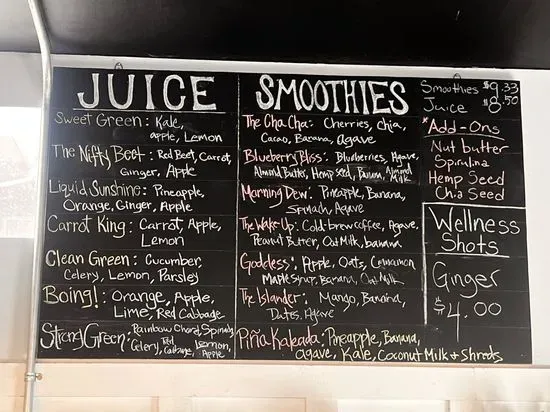 JUICE
Sweet Green: Kale,
apple, Lemon
The Nifty Beet: Red Beet, Carrot,
Ginger, Apple
Liquid Sunshine: Pineapple,
Orange, Ginger, Apple
Carrot King: Carrot, Apple,
Lemon
Clean Green: Cucumber,
Celery, Lemon, Parsley
Boing!: Orange, Apple,
Lime, Red Cabbage
Strong Green: Rainbow Chard, Spinach,
Celery, Red Cabbage, Lemon, Apple
SMOOTHIES
The Cha Cha: Cherries, chia,
Cacao, Banana, agave
Blueberry Bliss: Blueberries, Agave,
Almond Butter, Hemp Seed, Banana, Almond Milk
Morning Dew: Pineapple, Banana,
Spinach, Agave
The Wake Up: Cold brew coffee, Agave,
Peanut Butter, Oat Milk, banana
Goddess: Apple, Oats, Cinnamon
Maple Syrup, Banana, Oat Milk
The Islander: Mango, Banana,
Dates, Agave
Piña Kaleada: Pineapple, Banana,
agave, Kale, Coconut Milk & Shreds
Smoothies $9.33
Juice $8.50
*Add-Ons
Nut butter
Spirulina
Hemp Seed
Chia Seed
Wellness
Shots
Ginger
$4.00